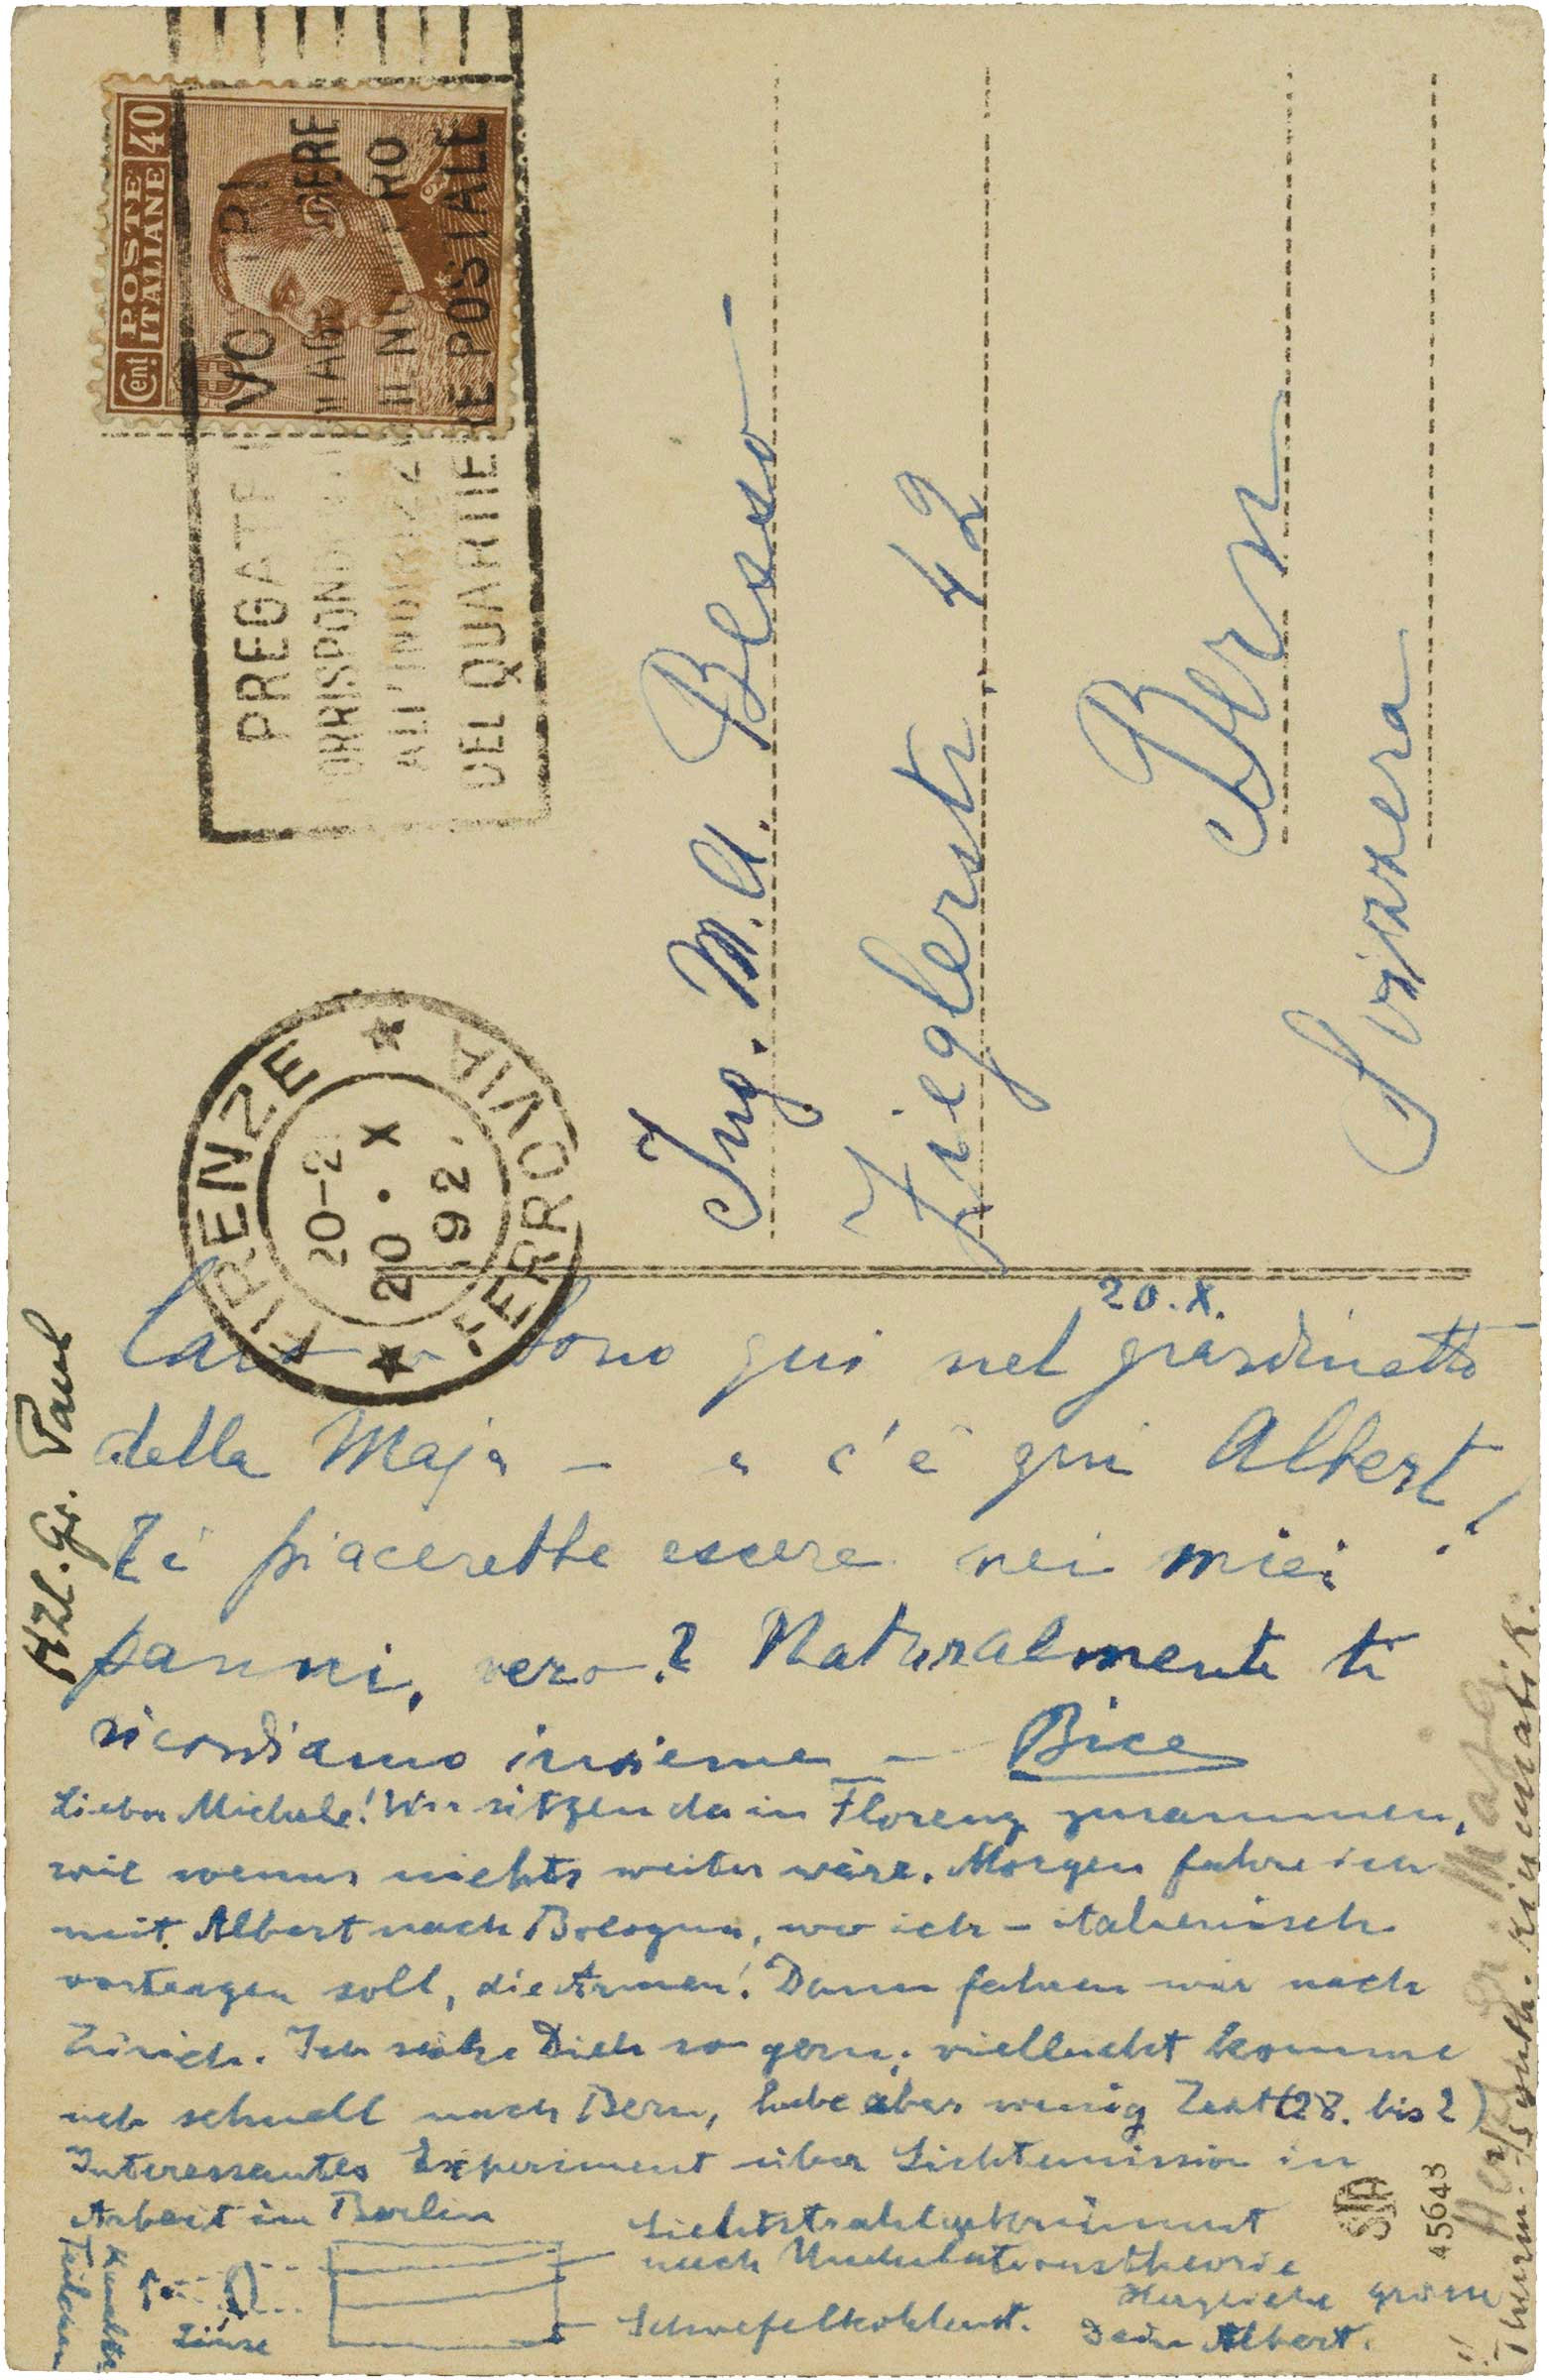 Cent. POSTE ITALIANE 40
PREGATE
DEL QUARTIERE POSTALE
FIRENZE
FERROVIA
20 · X
192
Ing. M. A. Besso
Zieglerstr. 42
Bern
Svizzera
20. X.
Caro – Sono qui nel giardinetto
della Maja – e c'è qui Albert!
Ti piacerebbe essere nei miei
panni, vero? Naturalmente ti
ricordiamo insieme – Bice
Lieber Michele! Wir sitzen da in Florenz zusammen,
wie wenns nichts weiter wäre. Morgen fahre ich
mit Albert nach Bologna, wo ich – italienisch
vortragen soll, die Armen! Dann fahren wir nach
Zürich. Ich sähe Dich so gern; vielleicht komme
ich schnell nach Bern, habe aber wenig Zeit (28. bis 2)
Interessantes Experiment über Lichtemission in
Arbeit in Berlin
Lichtstrahl gekrümmt
nach Undulationstheorie
Schwefelkohlenst.
Linse
Teilchen
Herzliche Grüsse
Dein Albert.
Hzl. Gr. Paul
Maja
45643